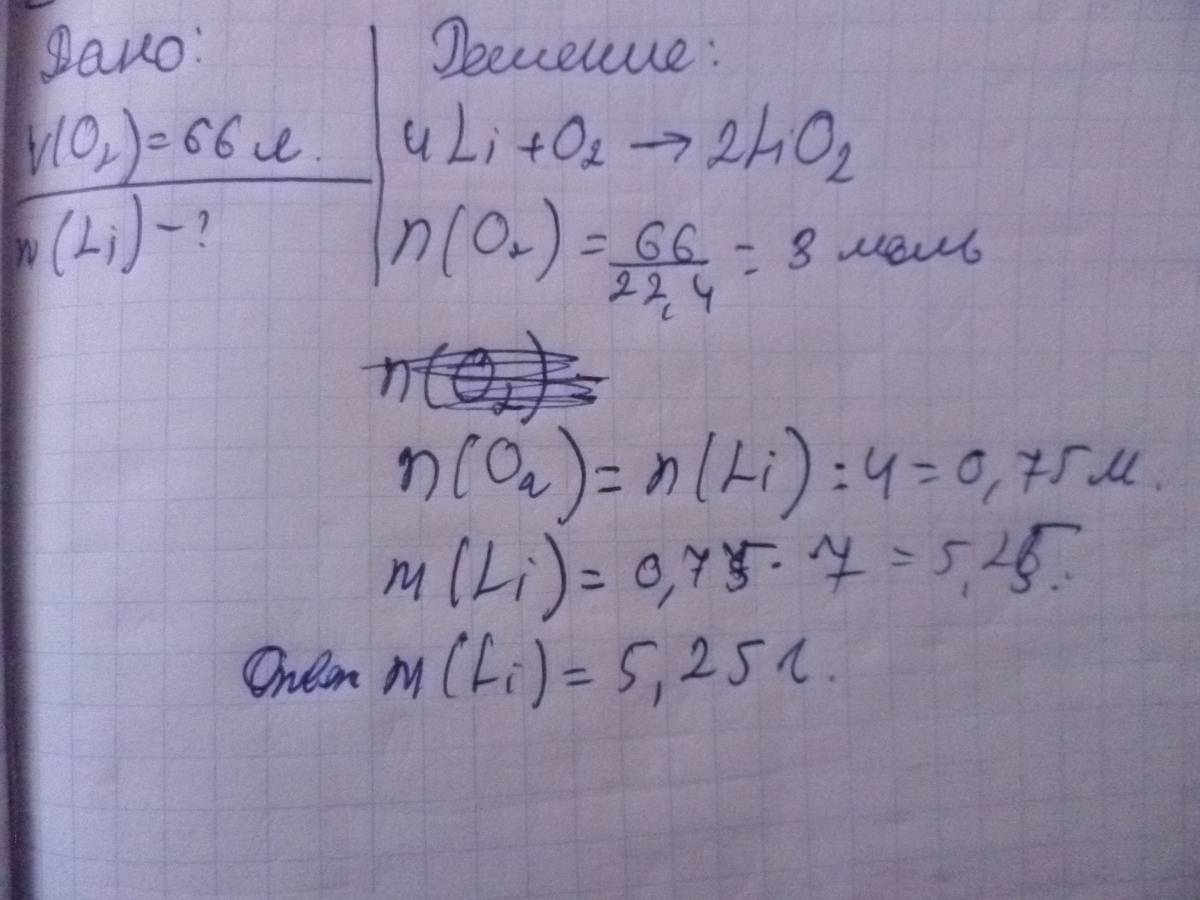 Дано:
V(O₂)=66л.
m(Li)-?
Решение:
4Li+O₂→2LiO₂
n(O₂)=66/22,4=3 моль
n(O₂)
n(O₂)=n(Li):4=0,75м.
m(Li)=0,75·7=5,25.
Ответ m(Li)=5,25г.